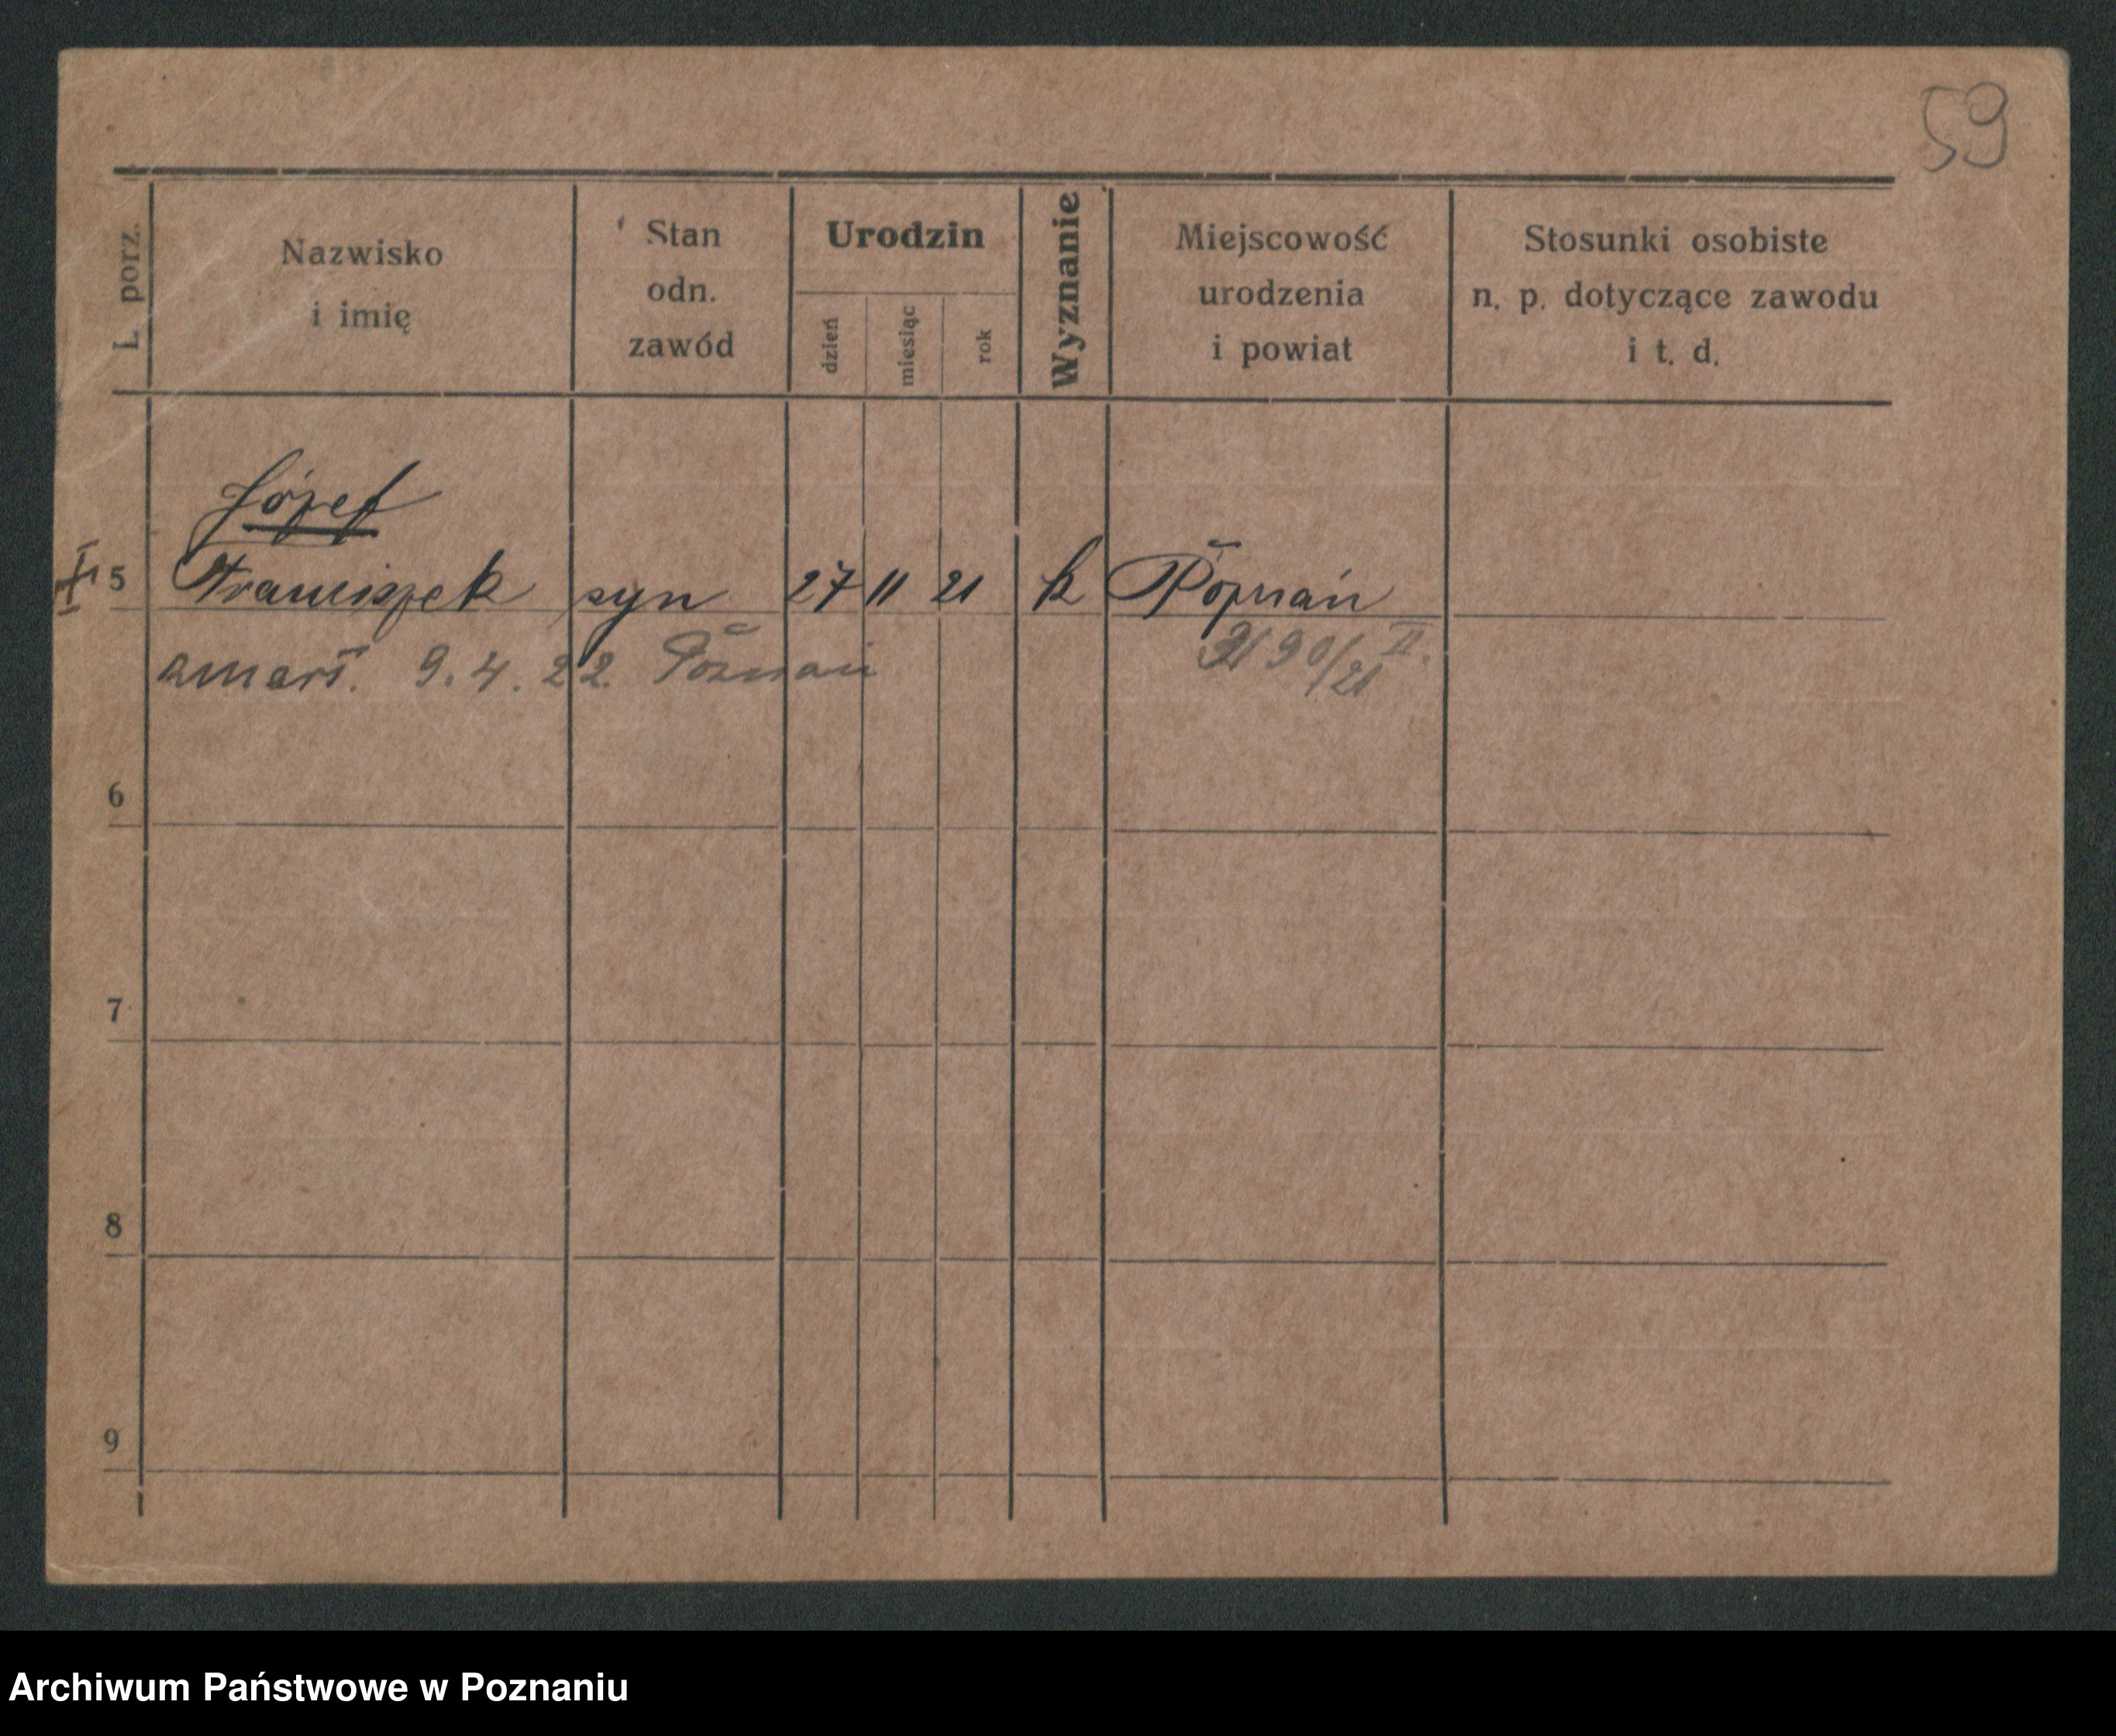 59
L. porz.
Nazwisko
i imię
Stan
odn.
zawód
Urodzin
dzień
miesiąc
rok
Wyznanie
Miejscowość
urodzenia
i powiat
Stosunki osobiste
n. p. dotyczące zawodu
i t. d.
Józef
5 Franciszek syn 27 11 21 k Poznań
zmarł. 9.4.22. Poznań
90/21 II.
6
7
8
9
Archiwum Państwowe w Poznaniu